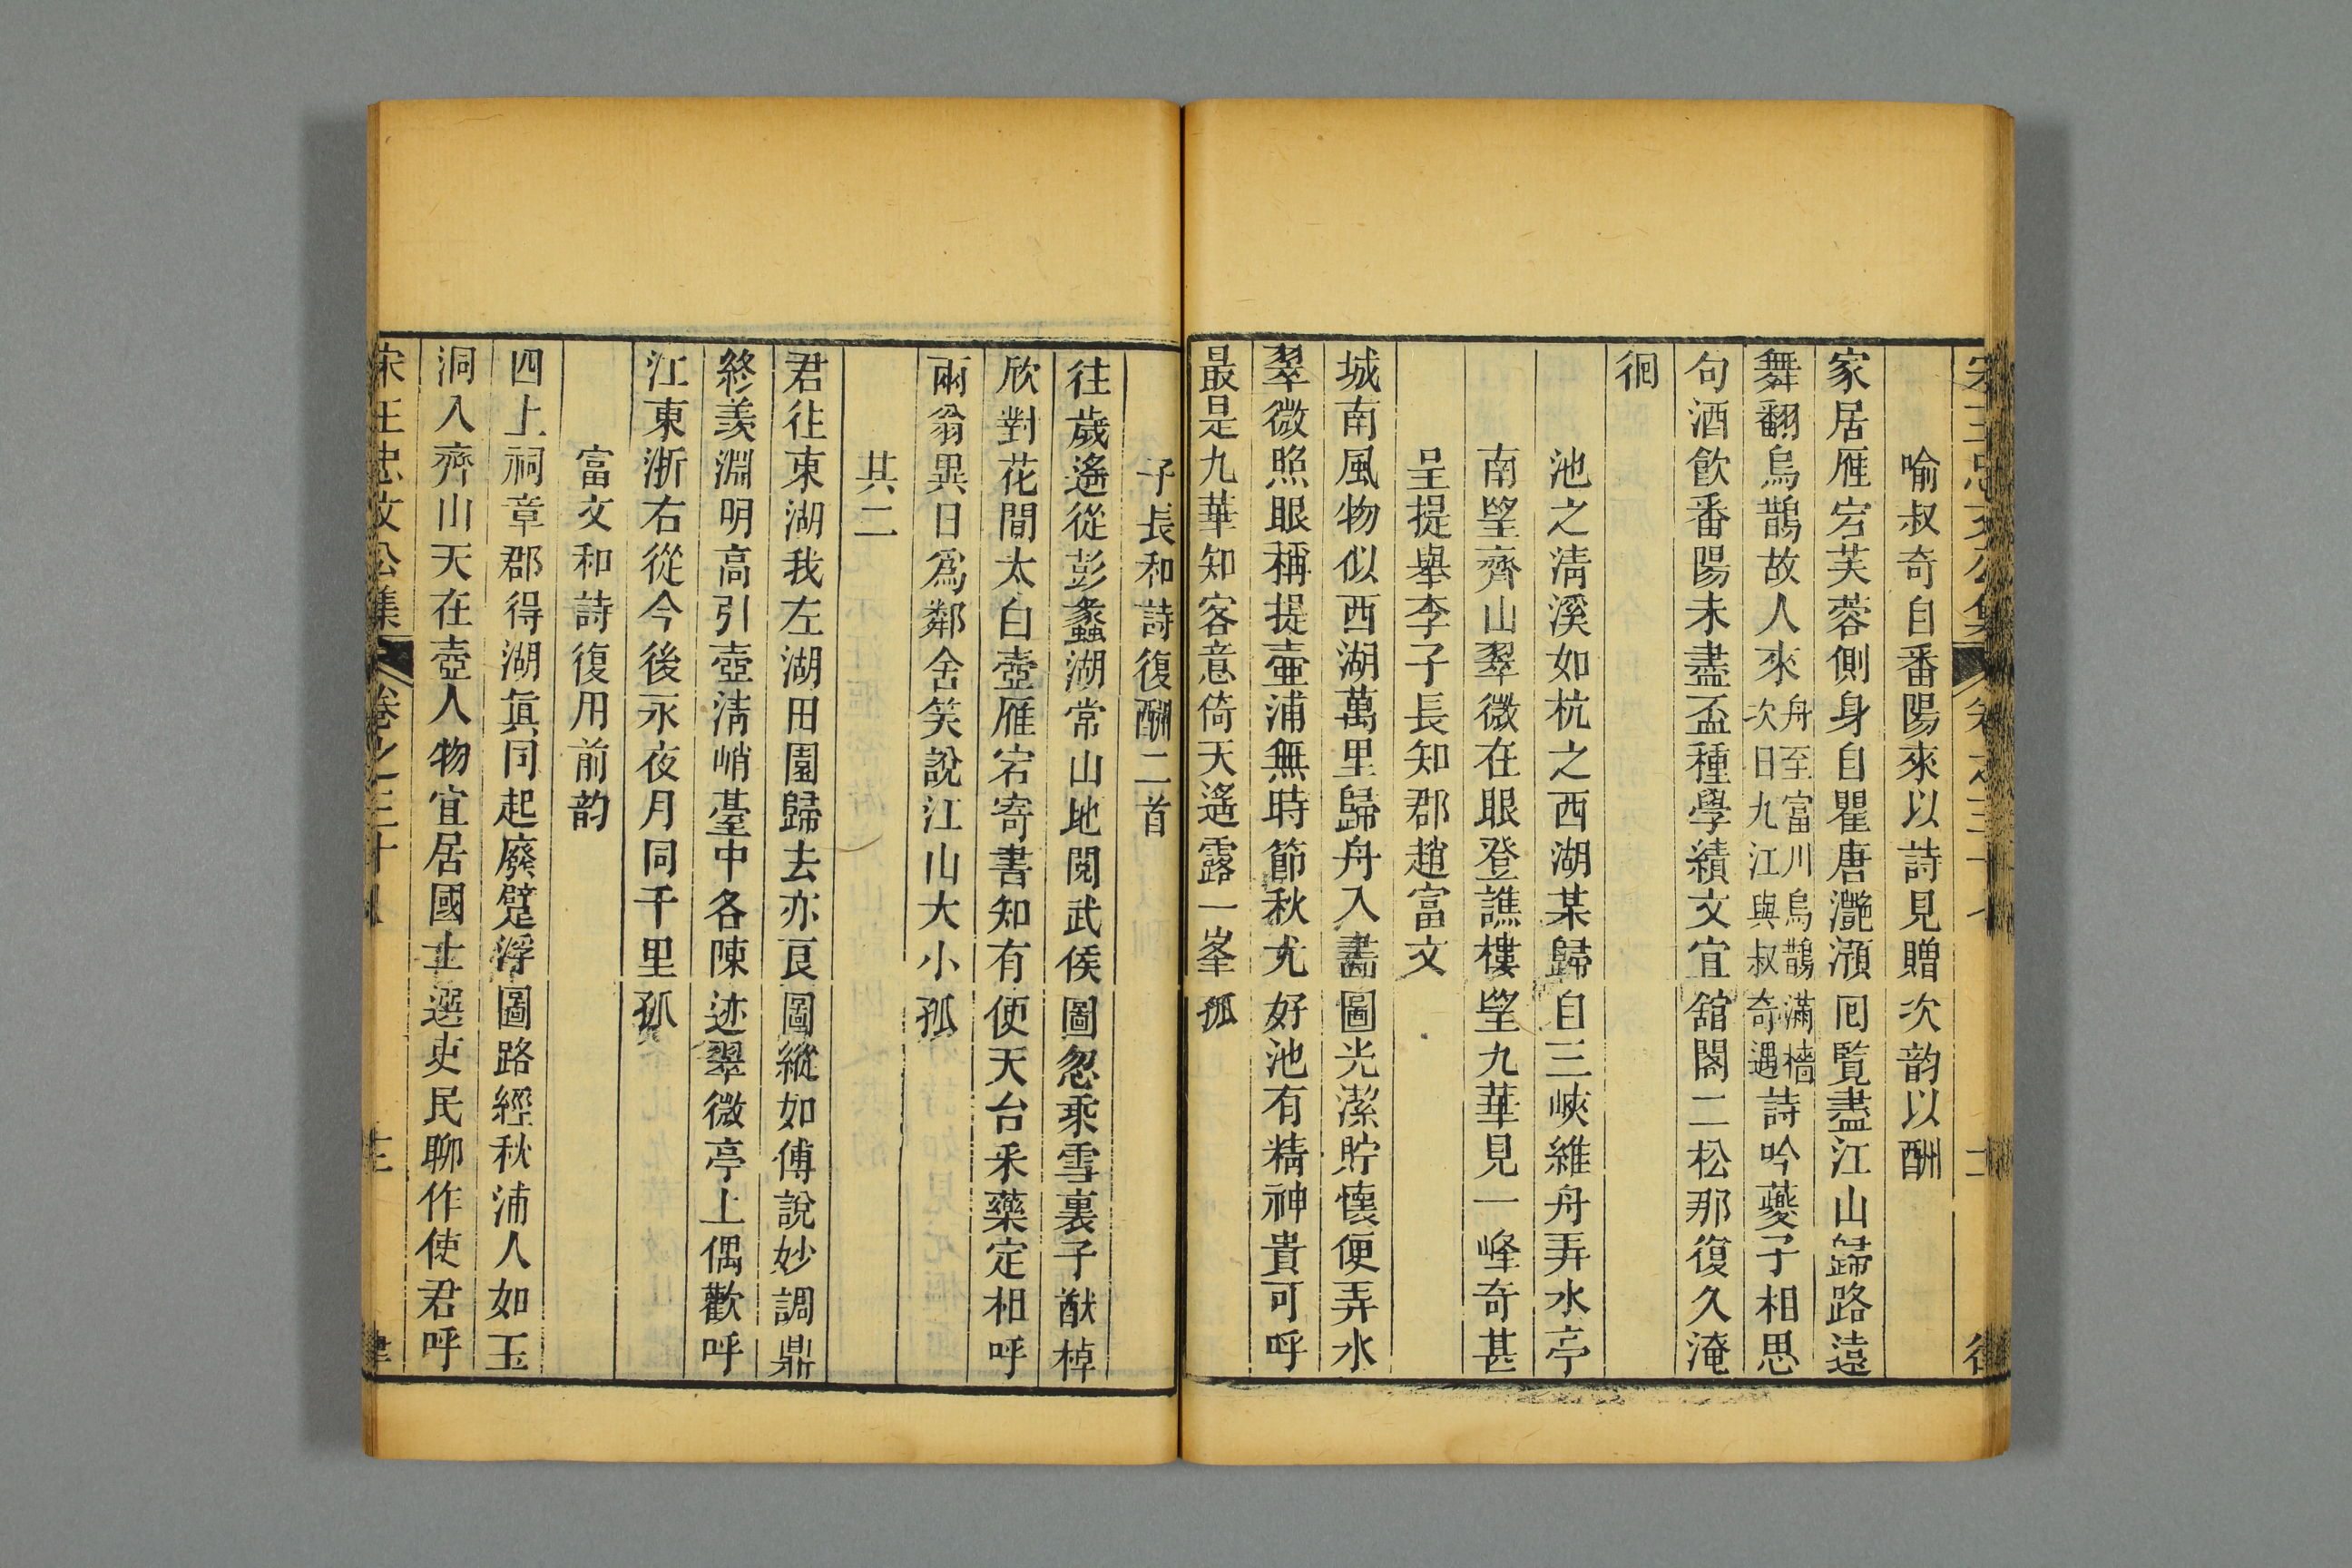 喻叔奇自番陽來以詩見贈次韵以酬
家居雁宕芙蓉側身自瞿唐灔澦囘覽盡江山歸路遠
舞翻烏鵲故人來舟至富川烏鵲滿檣次日九江與叔奇遇詩吟夔子相思
句酒飲番陽未盡盃種學績文宜舘閣二松那復久淹
徊
池之淸溪如杭之西湖某歸自三峽維舟弄水亭
南望齊山翠微在眼登譙樓望九華見一峰奇甚
呈提舉李子長知郡趙富文
城南風物似西湖萬里歸舟入畵圖光潔貯懷便弄水
翠微照眼稱提壷浦無時節秋尤好池有精神貴可呼
最是九華知客意倚天遙露一峯孤
子長和詩復酬二首
往歲遙從彭蠡湖常山地閱武侯圖忽乘雪裏子猷棹
欣對花間太白壺雁宕寄書知有便天台采藥定相呼
兩翁異日爲鄰舍笑說江山大小孤
其二
君徃東湖我左湖田園歸去亦良圖縱如傅說妙調鼎
終羨淵明高引壺淸峭臺中各陳迹翠微亭上偶歡呼
江東浙右從今後永夜月同千里孤
富文和詩復用前韵
四上祠章郡得湖眞同起廢躄浮圖路經秋浦人如玉
洞入齊山天在壺人物宜居國士選吏民聊作使君呼
宋王忠文公集 卷之三十四